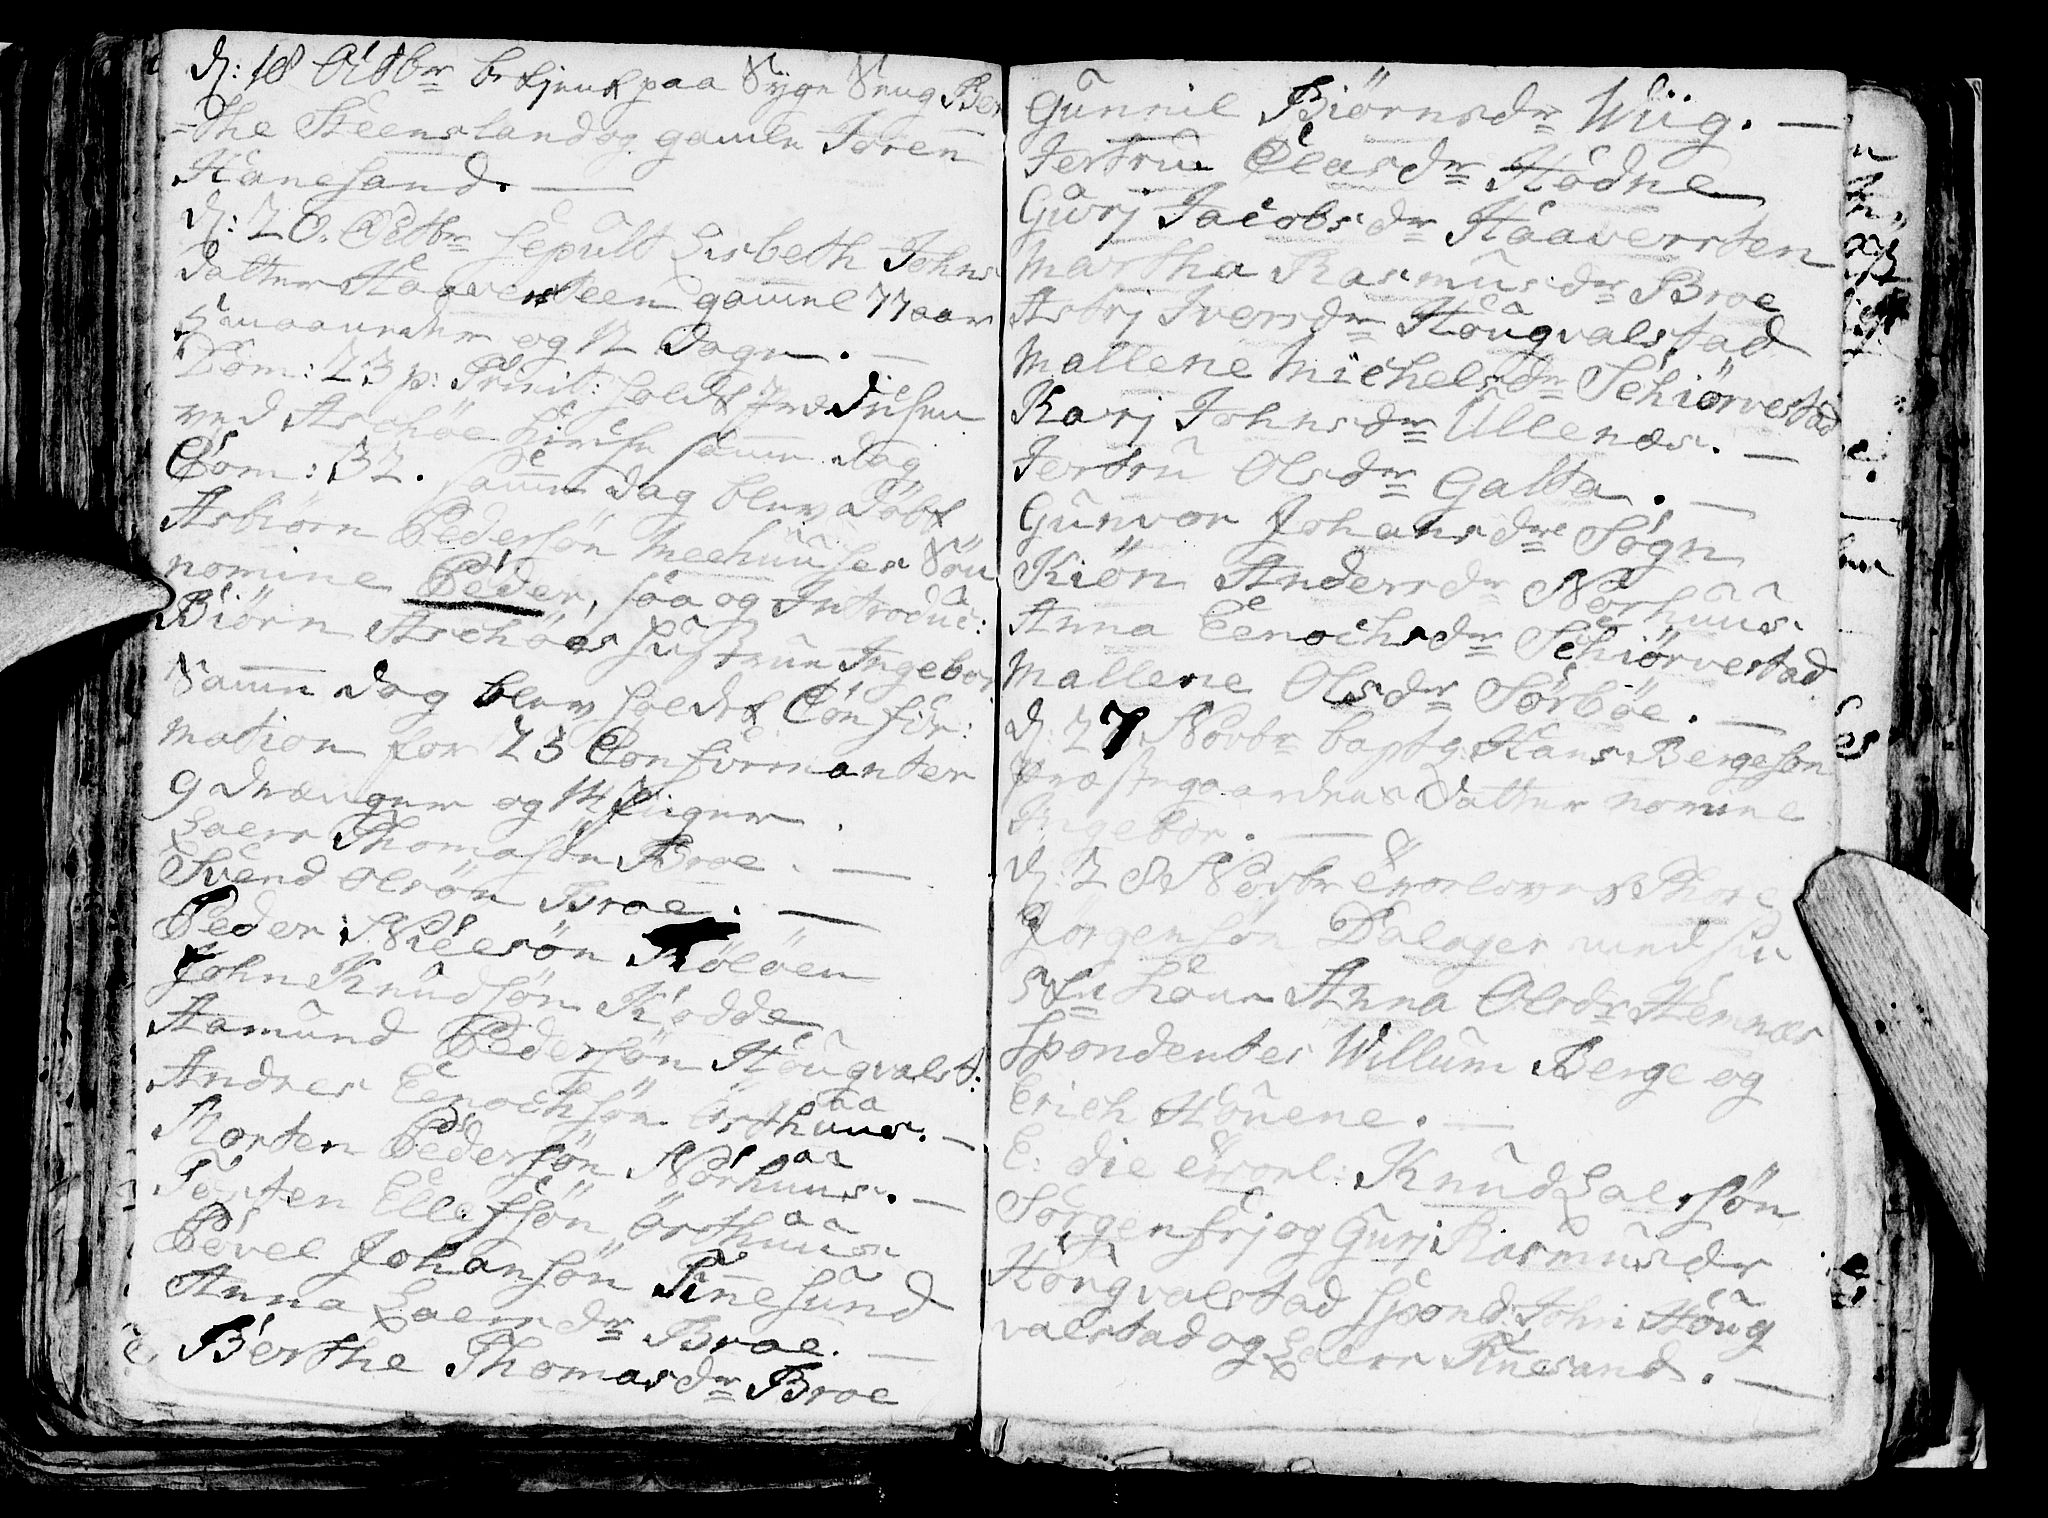 d: 18 Octbr betjent paa Syge Seng Ber
-the Steensland og gamle Joren
Hanesand.
d: 20. Octbr sepult Lisbeth Johns
datter Haaversteen gamel 77 aar
maaneder og 12 dage.
Dom: 23 p: Trinit: holdt Prædichen
ved Aschöe Kirche samme dag
Com: 32. samme dag blev döbt
Asbiörn Pedersön Meehuuses Sön
nomine Peder, saa og Introduc:
Biörn Aschöes hustrue Ingebor
Samme dag blev holdet Confir:
mation for 23 Confirmanter
9 drænger og 14 Piger.
Laers Thomasön Broe.
Svend Olsön Broe.
Peder Nielsön Kölöen
John Knudsön Kodde
Aamund Pedersön Hougvalst:
Andres Eenochsön Östhuus.
Morten Pedersön Norhuus.
Torsten Ellefsön Östhuus.
Povel Johansön Finnesund
Anna Laersdr Broe.
Berthe Thomasdr Broe
Gunnil Biörnsdr Wiig.
Jertru Olasdr Hodne
Gurj Jacobsdr Haaversten
Martha Rasmusdr Broe
Astrj Iversdr Hougvalstad
Mallene Michelsdr Schiörvestad
Karj Johnsdr Ullenæs.
Jertru Olsdr Galta.
Gunvor Johansdre Sogn
Kiön Andersdr Norhuus.
Anna Eenochsdr Schiörvestad
Mallene Olsdr Sörböe.
d: 27 Novbr baptz: Hans Bergeson
Præstegaardens datter nomine
Ingebor.
d: 28 Novbr Trolovet Thore
Jörgensön Dalager med sin
Anna Olsdr Hemnæs
Spondentes Willum Berge og
Erich Houene.
E: die trol: Knud Laersön
Sorgenfrj og Gurj Rasmusdr
Hougvalstad spond: John Houg
valstad og Laers Finesand.